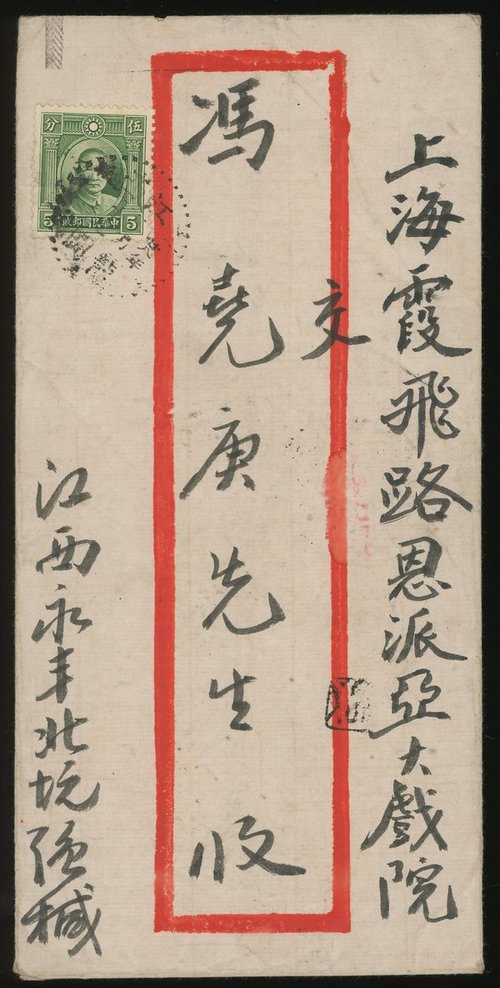 上海霞飛路恩派亞大戲院
交
馮堯庚先生收
江西永丰北坑强械
伍分
5 中華民國郵政 5